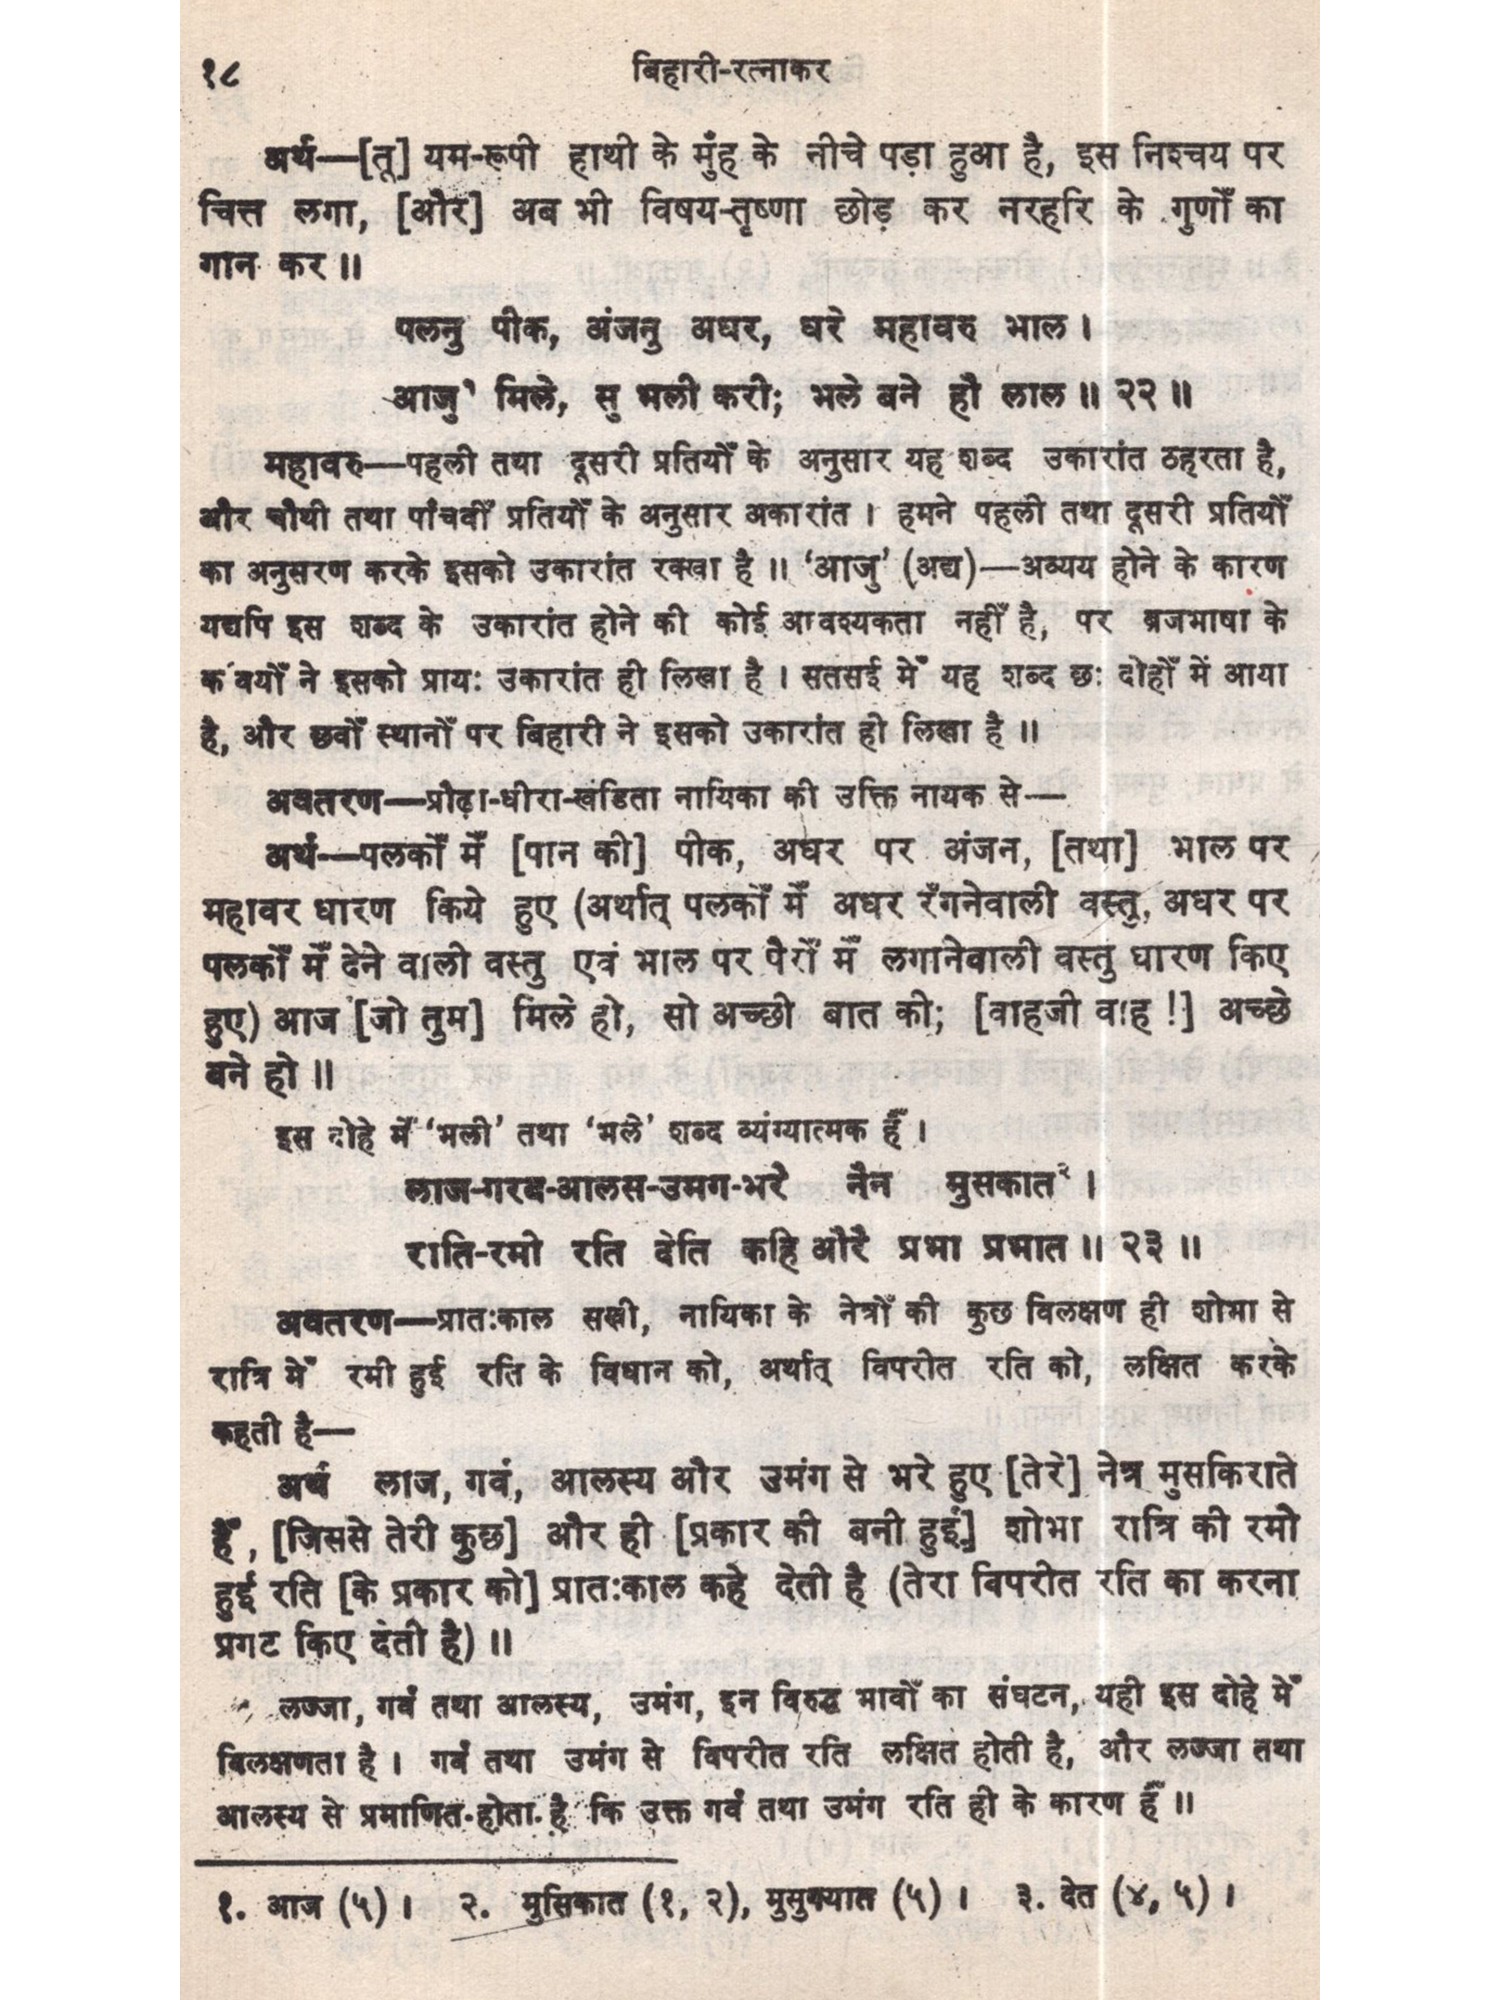 १८ बिहारी-रत्नाकर
अर्थ—[तू] यम-रूपी हाथी के मुँह के नीचे पड़ा हुआ है, इस निश्चय पर
चित्त लगा, [और] अब भी विषय-तृष्णा छोड़ कर नरहरि के गुणोँ का
गान कर॥
पलनु पीक, अंजनु अधर, धरे महावरु भाल।
आजु१ मिले, सु भली करी; भले बने हौ लाल॥ २२॥
महावरु—पहली तथा दूसरी प्रतियोँ के अनुसार यह शब्द उकारांत ठहरता है,
और चौथी तथा पांचवीँ प्रतियोँ के अनुसार अकारांत। हमने पहली तथा दूसरी प्रतियोँ
का अनुसरण करके इसको उकारांत रक्खा है॥ ‘आजु’ (अद्य)—अव्यय होने के कारण
यद्यपि इस शब्द के उकारांत होने की कोई आवश्यकता नहीँ है, पर ब्रजभाषा के
कवियोँ ने इसको प्रायः उकारांत ही लिखा है। सतसई मेँ यह शब्द छः दोहोँ में आया
है, और छवोँ स्थानोँ पर बिहारी ने इसको उकारांत ही लिखा है॥
अवतरण—प्रौढ़ा-धीरा-खंडिता नायिका की उक्ति नायक से—
अर्थ—पलकोँ मेँ [पान की] पीक, अधर पर अंजन, [तथा] भाल पर
महावर धारण किये हुए (अर्थात् पलकोँ मेँ अधर रँगनेवाली वस्तु, अधर पर
पलकोँ मेँ देने वाली वस्तु एवं भाल पर पैरोँ मेँ लगानेवाली वस्तु धारण किए
हुए) आज [जो तुम] मिले हो, सो अच्छी बात की; [वाहजी वाह !] अच्छे
बने हो॥
इस दोहे मेँ ‘भली’ तथा ‘भले’ शब्द व्यंग्यात्मक हैँ।
लाज-गरब-आलस-उमग-भरै नैन मुसकात२।
राति-रमी रति देति कहि औरै प्रभा प्रभात॥ २३॥
अवतरण—प्रातःकाल सखी, नायिका के नेत्रोँ की कुछ विलक्षण ही शोभा से
रात्रि मेँ रमी हुई रति के विधान को, अर्थात् विपरीत रति को, लक्षित करके
कहती है—
अर्थ लाज, गर्व, आलस्य और उमंग से भरे हुए [तेरे] नेत्र मुसकिराते
हैँ, [जिससे तेरी कुछ] और ही [प्रकार की बनी हुई] शोभा रात्रि की रमी
हुई रति [के प्रकार को] प्रातःकाल कहे देती है (तेरा विपरीत रति का करना
प्रगट किए देती है)॥
लज्जा, गर्व तथा आलस्य, उमंग, इन विरुद्ध भावोँ का संघटन, यही इस दोहे मेँ
विलक्षणता है। गर्व तथा उमंग से विपरीत रति लक्षित होती है, और लज्जा तथा
आलस्य से प्रमाणित होता है कि उक्त गर्व तथा उमंग रति ही के कारण हैँ॥
१. आज (५)। २. मुसिकात (१, २), मुसुक्यात (५)। ३. देत (४, ५)।